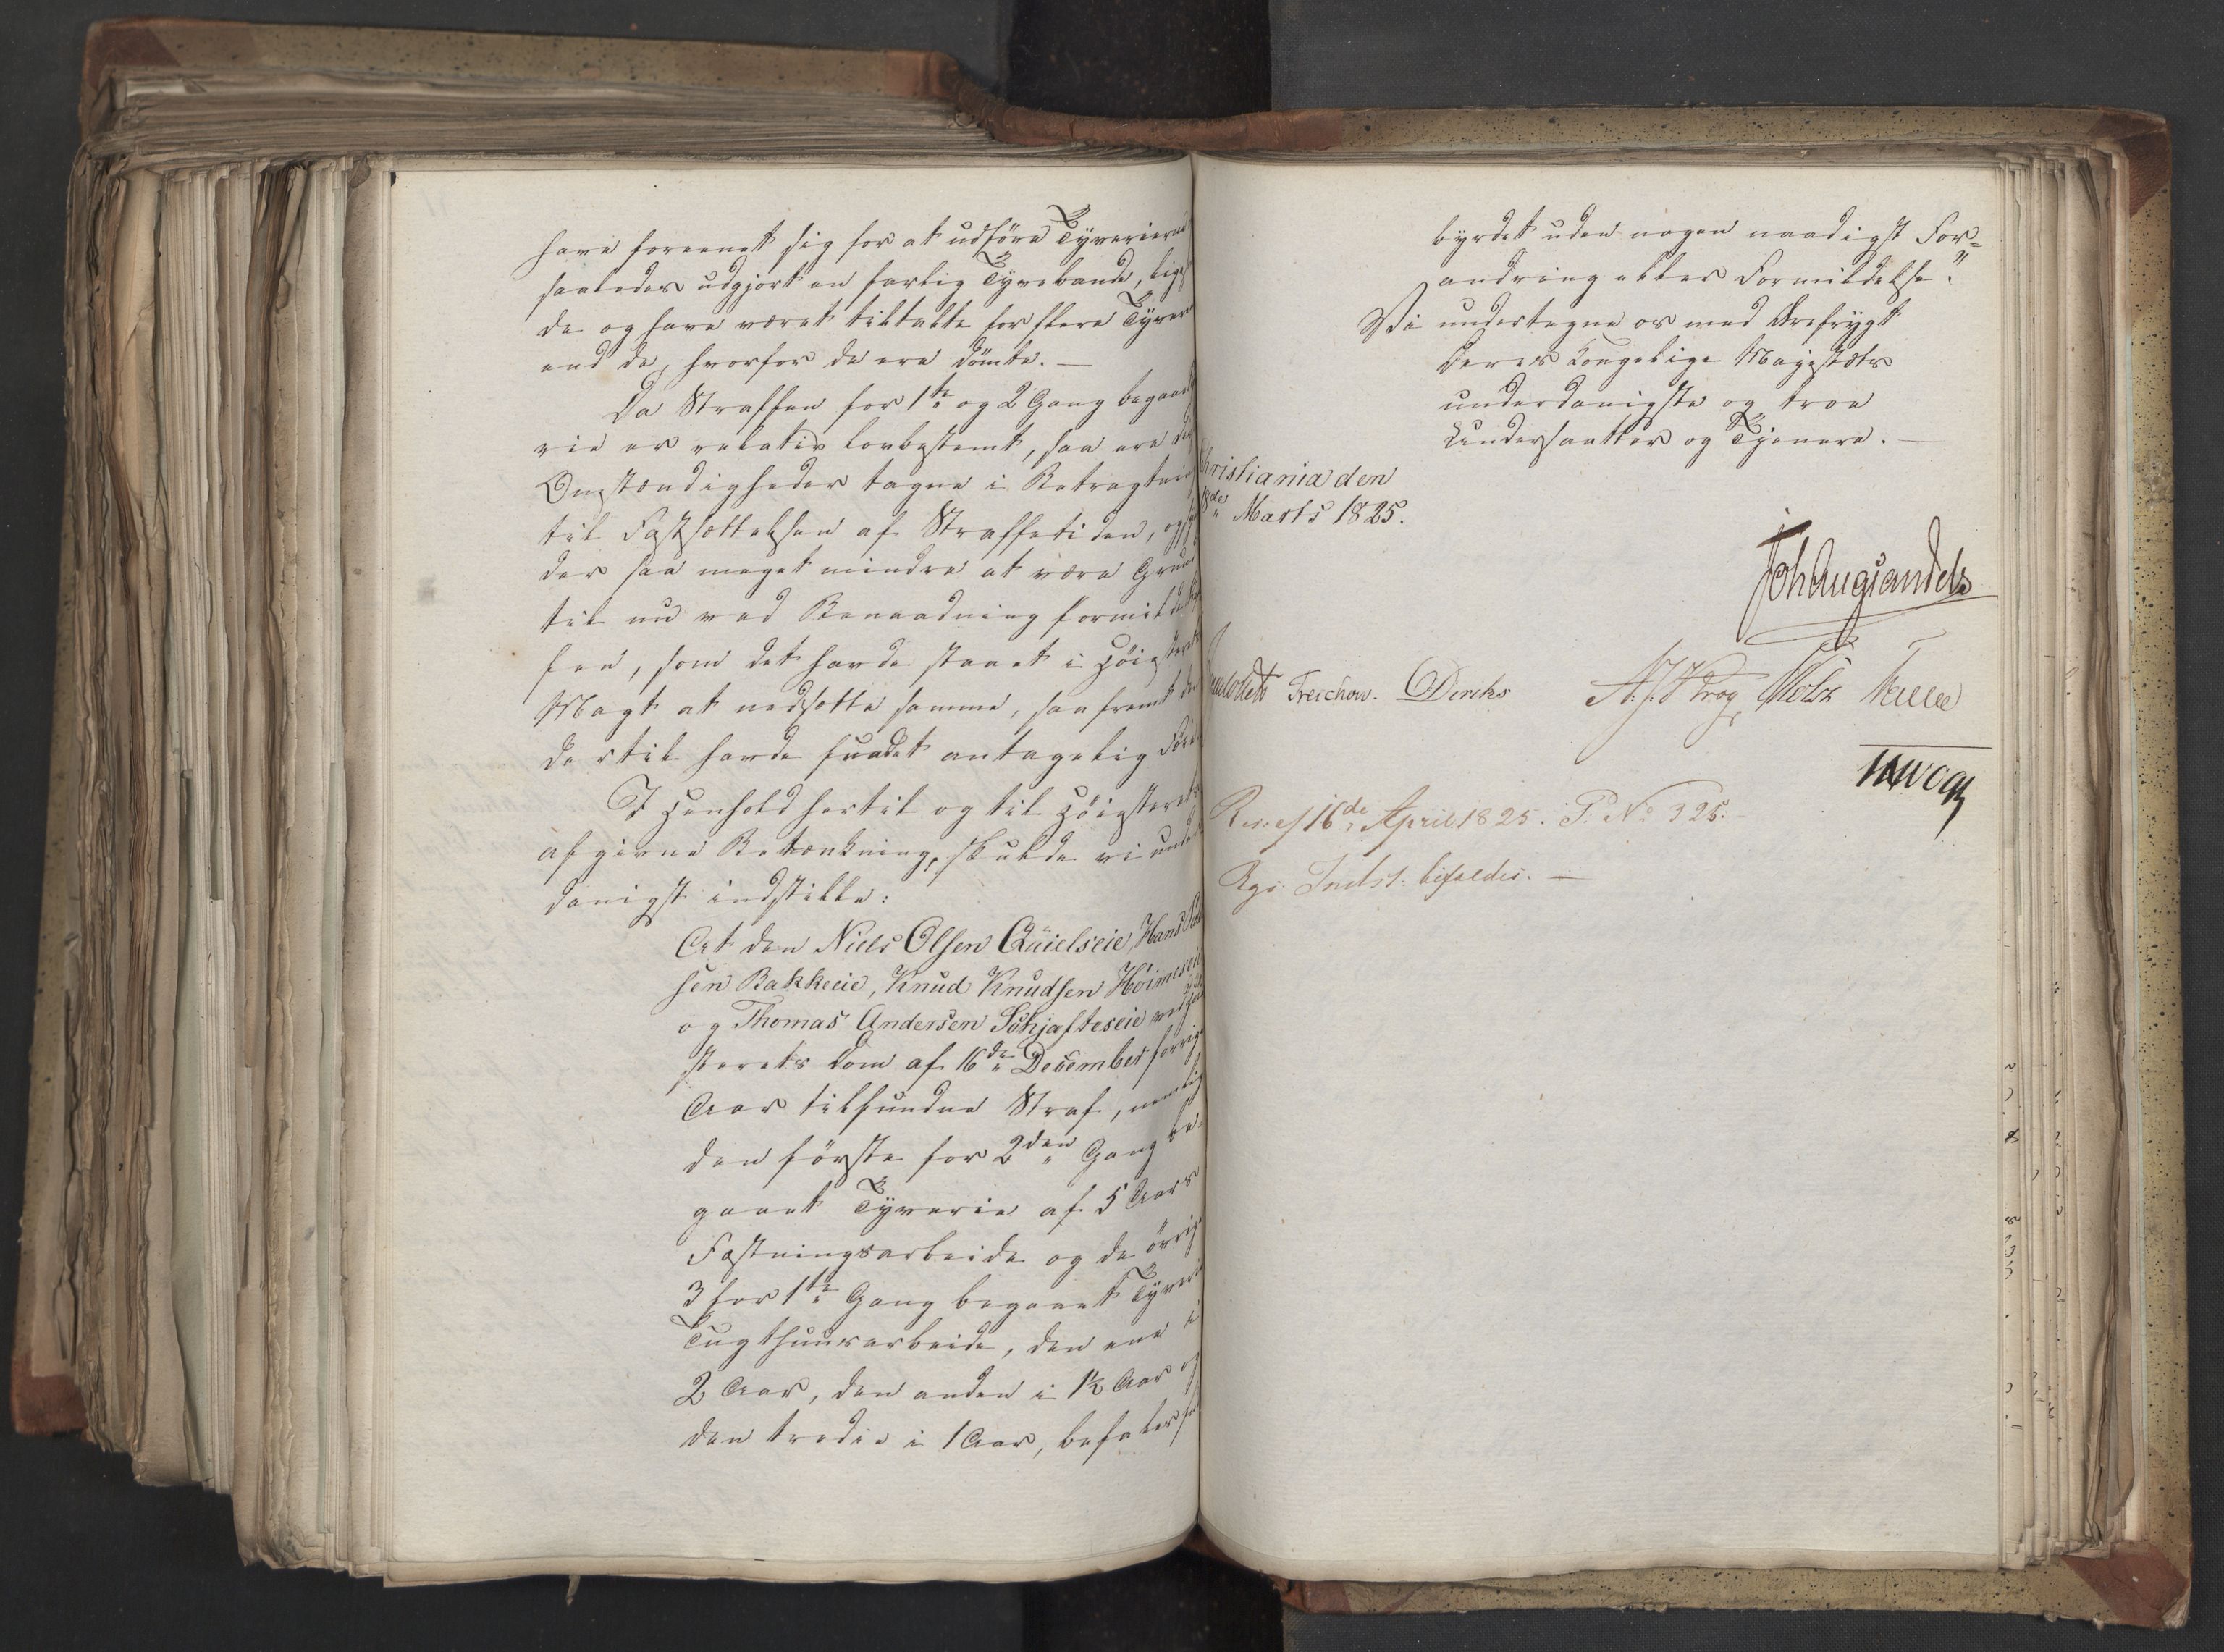 have foreenet sig for at udføre Tyverierne
saaledes udgjort en farlig Tyvebande, lige
de og have været tiltalte for flere Tyveri
end de, hvorfor de ere dømte. —
Da Straffen for 1te og 2 Gang begaaet
rie er relativ lovbestemt, saa ere de
Omstændigheder tagne i Betragtning
til Fastsættelsen af Straffetiden, og
der saa meget mindre at være Grund
til nu ved Benaadning formilde
fen, som det havde staaet i Høiesteret
Magt at nedsætte samme, saafremt den
dertil havde fundet antagelig Føie
I Henhold hertil og til Høiesterets
afgivne Betænkning, skulde vi under
danigst indstille:
At den Niels Olsen Qüielseie, Hans
sen Bakkeeie, Knud Knudsen Höimeseie
og Thomas Andersen Schjafteseie ved
sterets Dom af 16de December forrige
Aar tilfundne Straf, nemlig
den første for 2den Gang be-
gaaet Tyverie af 5 Aars
Fæstningsarbeide og de øvrige
3 for 1te Gang begaaet Tyveri
Tugthuusarbeide, den ene i
2 Aar, den anden i 1½ Aar og
den tredie i 1 Aar, befales
byrdet uden nogen naadigst For=
andring eller Formildelse."
Vi undertegne os med Ærefrygt
Deres Kongelige Majestæts
underdanigste og troe
Undersaatter og Tjenere. —
Christiania den
18de Marts 1825.
Joh Aug Sandels
Treschow. Diriks Krog Motz
Res. af 16de April 1825. P. No 325.
Rgs. Indst. bifaldes. —